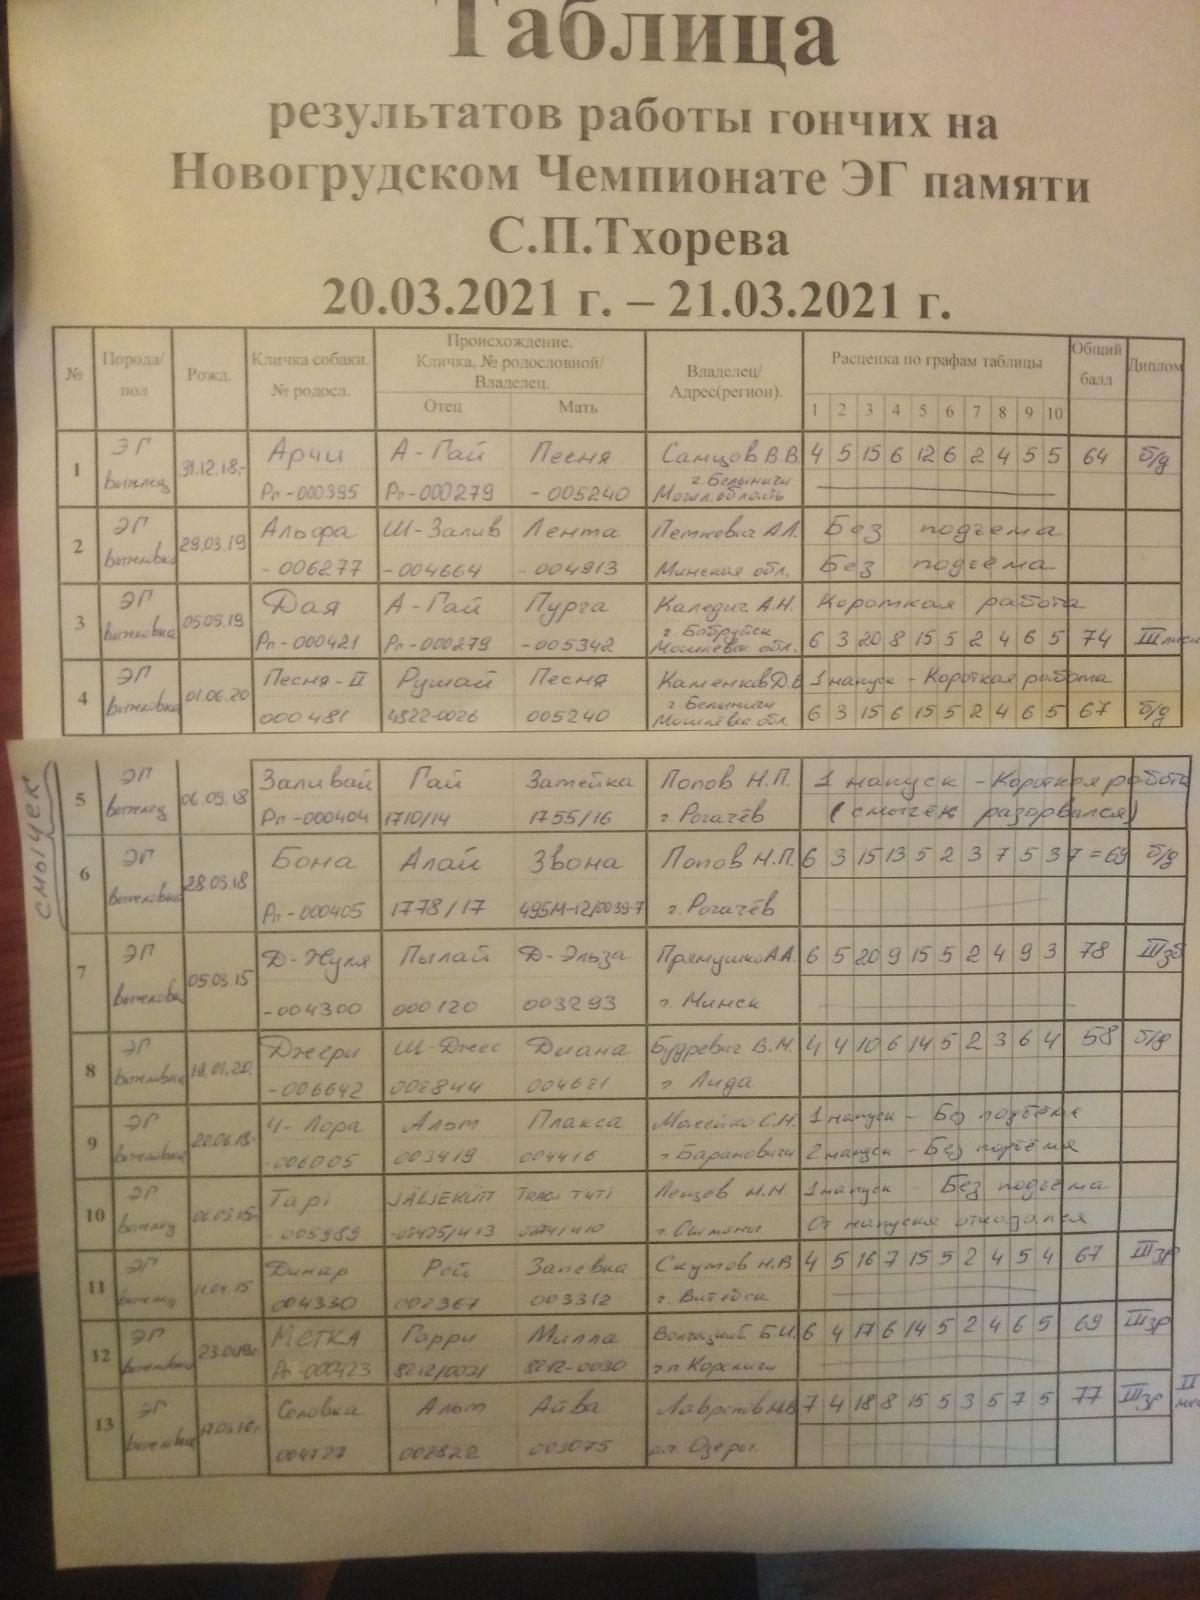 Таблица
результатов работы гончих на
Новогрудском Чемпионате ЭГ памяти
С.П.Тхорева
20.03.2021 г. – 21.03.2021 г.
№ Порода/ пол Рожд. Кличка собаки. № родосл. Происхождение. Кличка, № родословной/ Владелец. Владелец/ Адрес(регион). Расценка по графам таблицы Общий балл Диплом
Отец Мать 1 2 3 4 5 6 7 8 9 10
1 ЭГ 31.12.18г Арчи А-Гай Песня Самцов В.В. 4 5 15 6 12 6 2 4 5 5 64 б/д
выжлец Рп-000395 Рп-000279 -005240 г. Белыничи Могил.область
2 ЭГ 29.03.19 Альфа Ш-Залив Лента Петкевич А.Л. Без подъема
выжловка -006277 -004664 -004913 Минская обл. Без подъёма
3 ЭГ 05.05.19 Дая А-Гай Пурга Каледич А.Н. Короткая работа
выжловка Рп-000421 Рп-000279 -005342 г. Бобруйск Могилёвск обл. 6 3 20 8 15 5 2 4 6 5 74 III
4 ЭГ 01.06.20 Песня-II Рушай Песня Каменков Д.В 1 напуск - Короткая работа
выжловка 000481 4822-0026 005240 г. Белыничи Могилёвск обл. 6 3 15 6 15 5 2 4 6 5 67 б/д
смычек
5 ЭГ 06.09.18 Заливай Гай Затейка Попов Н.П. 1 напуск - Короткая работа
выжлец Рп-000404 1710/14 1755/16 г. Рогачёв (смычек разорвался)
6 ЭГ 28.03.18 Бона Алай Звона Попов Н.П. 6 3 15 13 5 2 3 7 5 3 7 = 69 б/д
выжловка Рп-000405 1778/17 495М-12/0039-7 г. Рогачёв
7 ЭГ 05.03.15 Д-Жуля Пылай Д-Эльза Прямушко А.А. 6 5 20 9 15 5 2 4 9 3 78 III
выжловка -004300 000120 003293 г. Минск
8 ЭГ 19.01.20 Джери Ш-Джес Диана Будревич В.М. 4 4 10 6 14 5 2 3 6 4 58 б/д
выжловка -006642 002844 004621 г. Лида
9 ЭГ 20.06.18г Ч-Лора Альт Плакса С.Н. 1 напуск - Без подъёма
выжловка -006005 003419 004416 г. Барановичи 2 напуск - Без подъёма
10 ЭГ Тарі JÄLJEKÜTI Н.Н. 1 напуск Без подъема
выжлец 005989 г. Ошмяны От напуска отказался
11 ЭГ 11.04.15 Динар Рой Запевка Скутов Н.В 4 5 16 7 15 5 2 4 5 4 67 III зр
выжлец 004330 002967 003312 г. Витебск
12 ЭГ Метка Гарри Милла Б.И. 6 4 17 6 14 5 2 4 6 5 69 III зр
выжловка Рп-000423 8212/0021 8212-0030 г.п Кореличи
13 ЭГ Соловка Альт Айва 7 4 18 8 15 5 3 5 7 5 77 III зр II
выжловка 004727 002822 003075 Озеры